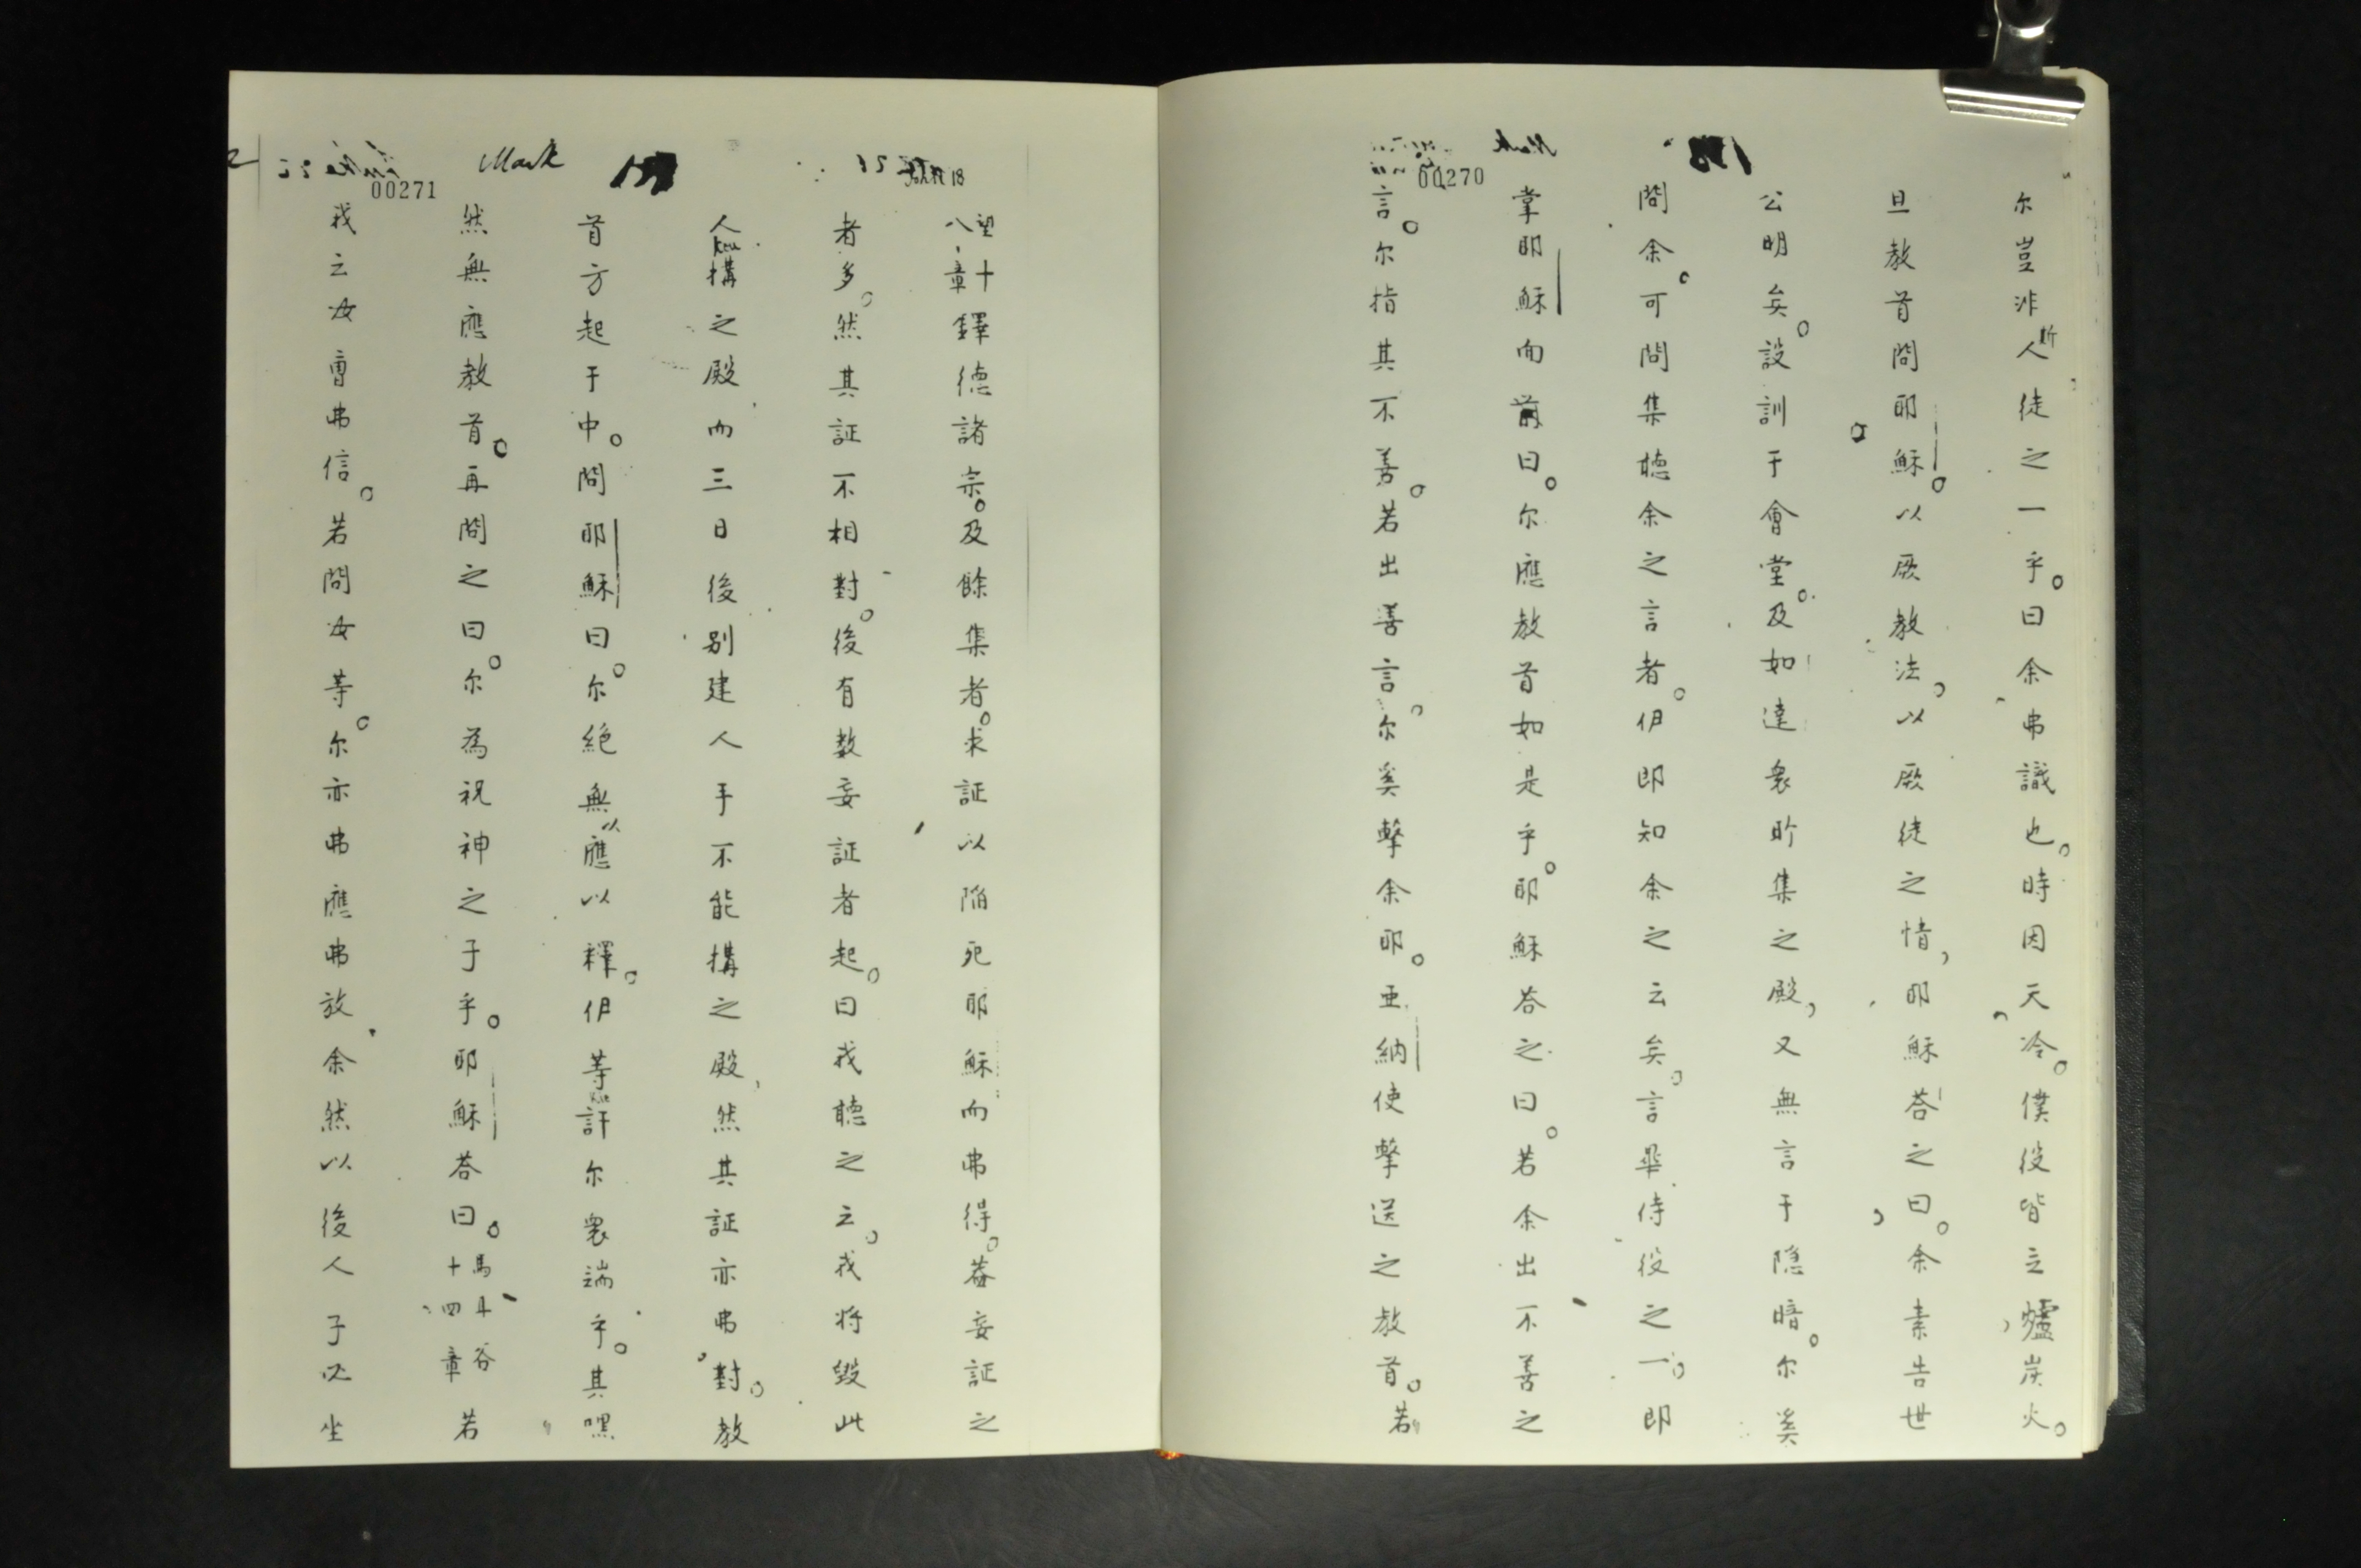 00270
尔豈非斯人徒之一乎。曰余弗識也。時因天冷。僕役皆立爐炭火。
旦教首問耶穌。以厥教法。以厥徒之情，耶穌荅之曰。余素告世
公明矣。設訓于會堂。及如達衆所集之殿，又無言于隐暗。尔奚
問余。可問集聴余之言者。伊即知余之云矣。言畢侍役之一。即
掌耶穌面前曰。尔應教首如是乎。耶穌荅之曰。若余出不善之
言。尔指其不善。若出善言。尔奚擊余耶。亜納使擊送之教首。若
00271
Mark
望十八章鐸德諸宗。及餘集者。求証以陷死耶穌而弗得。蓋妄証之
者多。然其証不相對。後有数妄証者起。曰我聴之云。我将毀此
人構之殿而三日後别建人手不能構之殿，然其証亦弗對。教
首方起于中。問耶穌曰。尔絶無以應以釋。伊等訐尔衆端乎。其嘿
然無應教首。再問之曰。尔為祝神之子乎。耶穌荅曰。馬斗谷十四章若
我云汝曹弗信。若問汝等。尔亦弗應弗放余然以後人子必坐